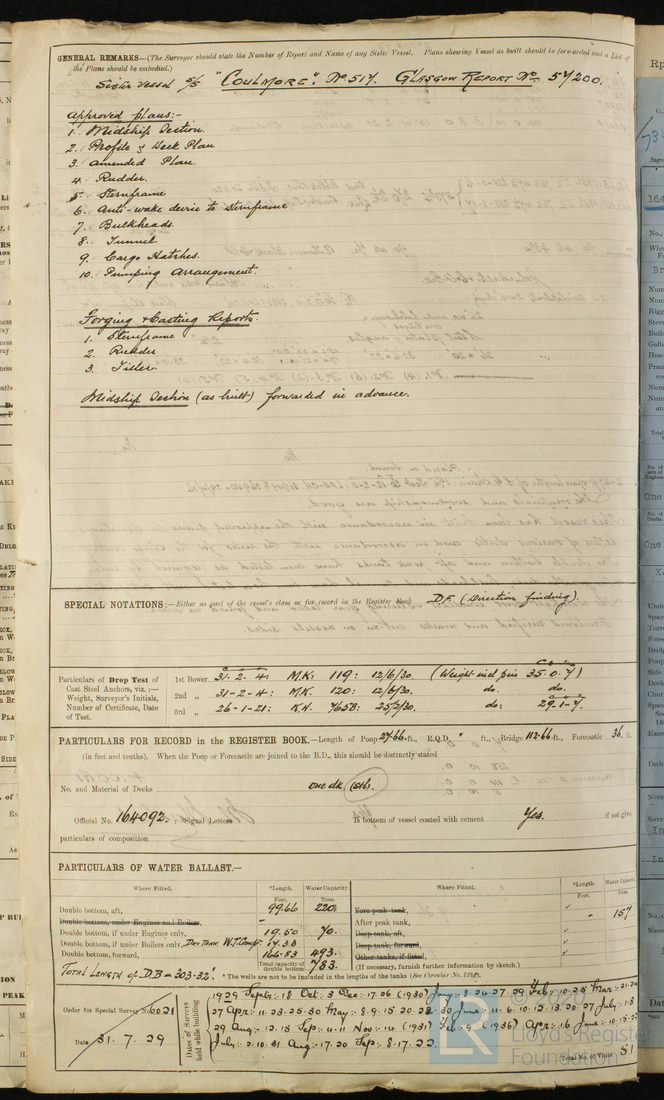 GENERAL REMARKS—(The Surveyor should state the Number of Report and Name of any Sister Vessel. Plans showing Vessel as built should be forwarded and a List of
the Plans should be embodied.)
Sister Vessel S/S "COULMORE". No 517. GLASGOW REPORT No.
Approved plans:-
1. Midship Section.
2. Profile & Deck Plan
3. Amended Plan.
4. Rudder.
5. Sternframe
6. Anti-wake device to Sternframe
7. Bulkheads.
8. Tunnel.
9. Cargo Hatches.
10. Pumping Arrangement.
Forging & Casting Reports.
1. Sternframe
2. Rudder
3. Tiller.
Midship Section (as built) forwarded in advance.
SPECIAL NOTATIONS:—Either as part of the vessel's class or for record in the Register Book D.F. (Direction finding).
Particulars of Drop Test of
Cast Steel Anchors, viz.:—
Weight, Surveyor's Initials,
Number of Certificate, Date
of Test.
1st Bower 31. 2. 4: M.K: 119: 12/6/30. (Weight incl pin 35. 0. 7)
2nd „ 31-2-4: M.K. 120: 12/6/30. do. do.
3rd „ 26-1-21: K.H. 765B: 25/2/30. do: 29.1-7.
PARTICULARS FOR RECORD in the REGISTER BOOK.—Length of Poop 27.66 ft., R.Q.D. " ft., Bridge 112.66 ft., Forecastle 36. ft.
(in feet and tenths). When the Poop or Forecastle are joined to the B.D., this should be distinctly stated
No. and Material of Decks one dk. (stl).
Official No. 164092. Signal Letters Is bottom of vessel coated with cement Yes. if not give
particulars of composition
PARTICULARS OF WATER BALLAST.—
Where Fitted. *Length. Water Capacity. Where Fitted. *Length. Water Capacity.
Feet. Tons. Feet. Tons.
Double bottom, aft, 99.66 220 Fore peak tank,
Double bottom, under Engines and Boilers, - After peak tank, - 157
Double bottom, if under Engines only, 19.50 70. Deep tank, aft,
Double bottom, if under Boilers only, W.T. Comp. 17.33 Deep tank, forward,
Double bottom, forward, 166.83 493. Other tanks, if fitted,
Total capacity of double bottom 783. (If necessary, furnish further information by sketch.)
TOTAL LENGTH OF D.B = 303.32'. * The wells are not to be included in the lengths of the tanks (See Circular No. 1284).
Order for Special Survey No. 6021
Date 31. 7. 29
Dates of Surveys
held while building
1929 Septr: 18 Oct: 3 Dec: 17.26 (1930) Jany: 8.24.27.29 Feb: 10.25 Mar: 21.24
27 Apr: 11.23.25.30 May: 8.9.15.20.22.30 June: 4.6.10.12.13.20.27 July: 1.3
29 Aug: 12.15 Sep: 4.11 Nov: 14 (1931) Feb: 9 (1936) Apr: 16 June: 10.15.22
July: 2.10.31 Aug: 17.20 Sep: 8.17.22.
Total No. of Visits 51
© 2020
LR
Lloyd's Register
Foundation